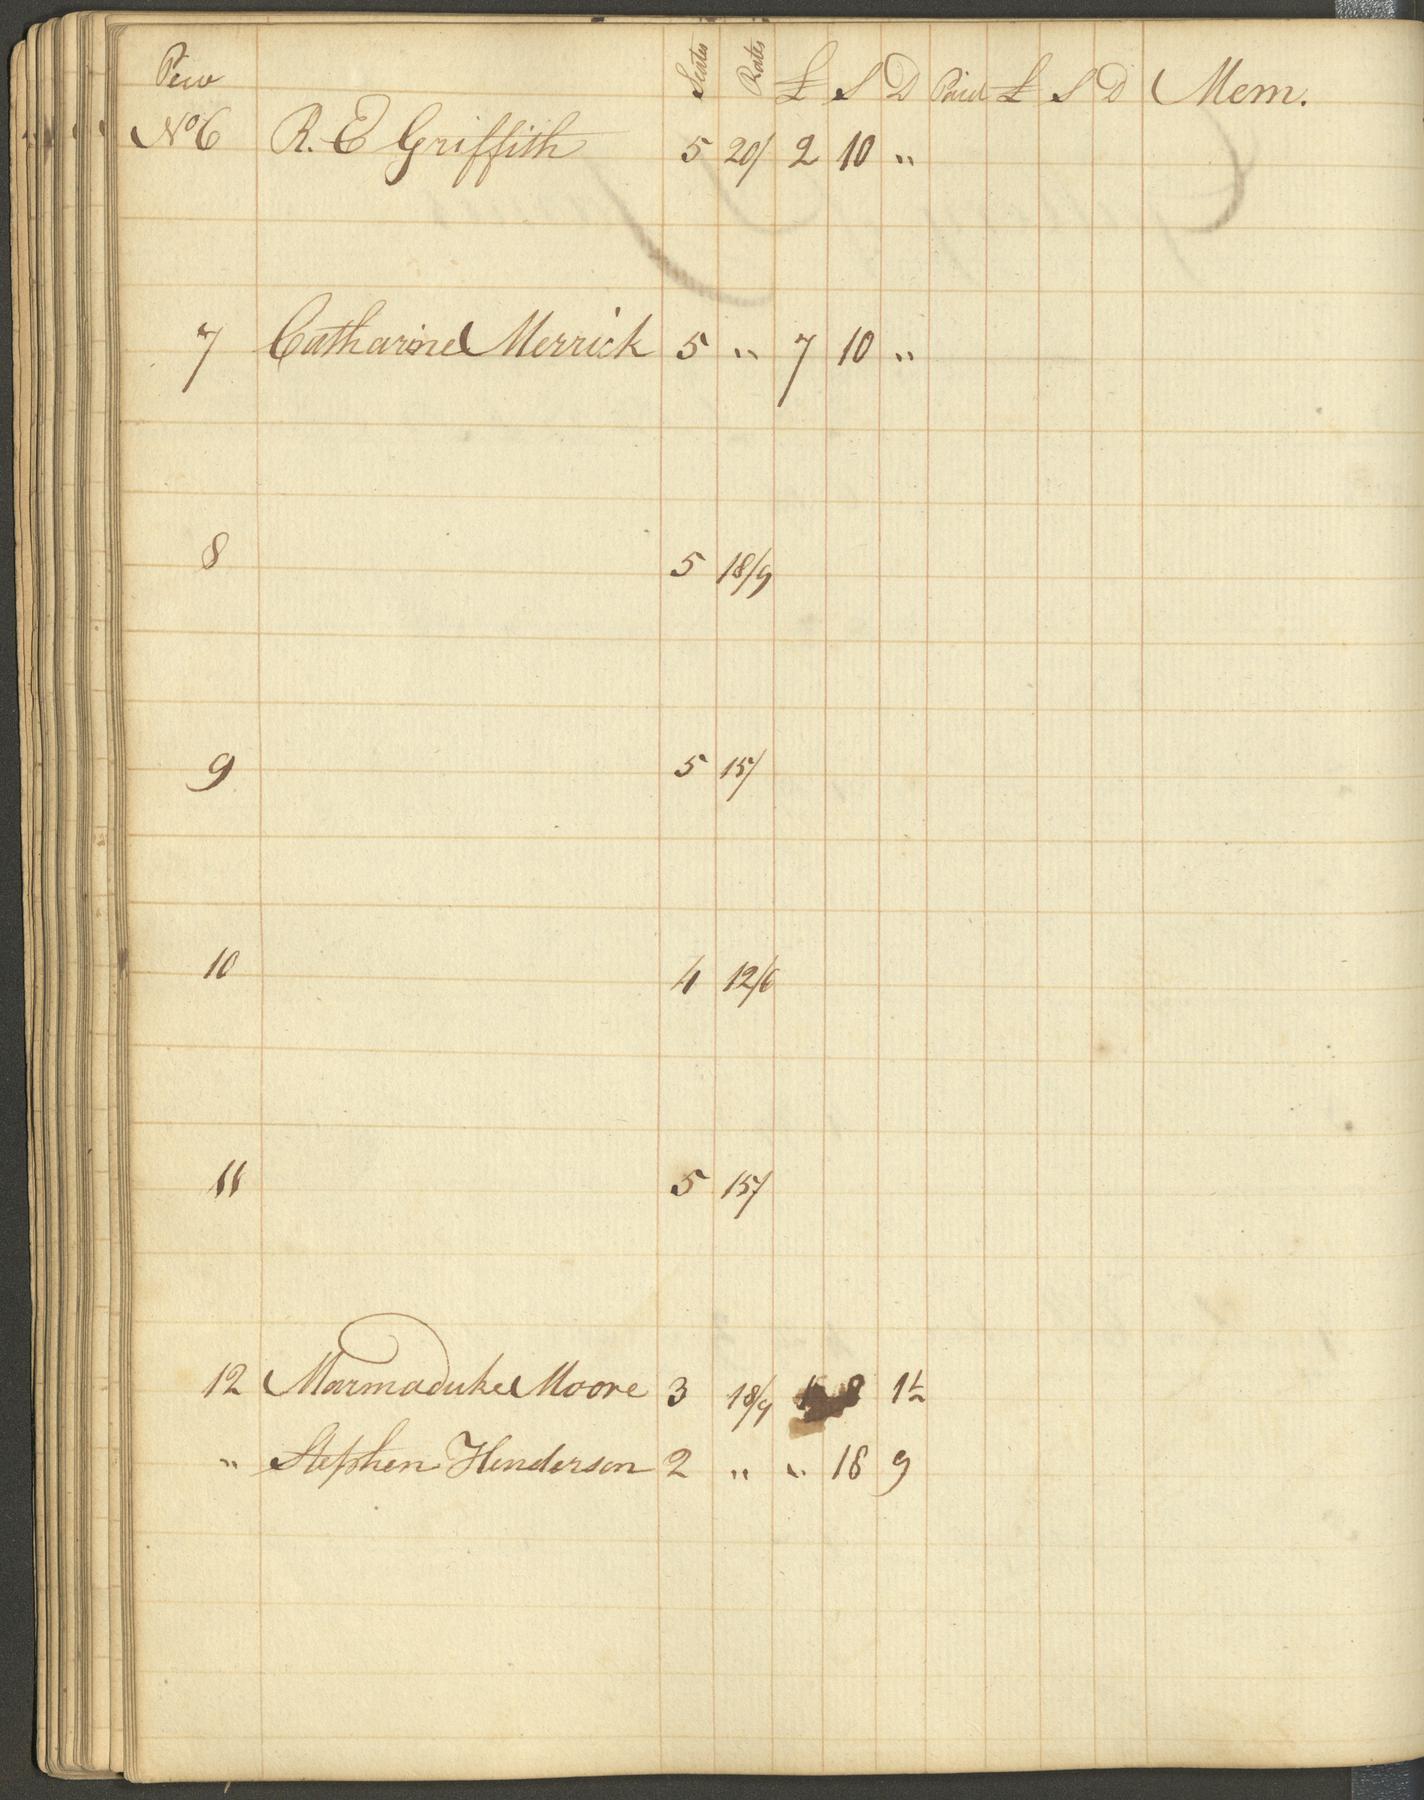 Pew Seats Rates £ S D Paid £ S D Mem.
No 6 R. E Griffith 5 20/ 2 10 "
7 Catharine Merrick 5 " 7 10 "
8 5 18/9
9 5 15/
10 4 12/6
11 5 15/
12 Marmaduke Moore 3 18/9 1 8 1½
" Stephen Henderson 2 " " 18 9